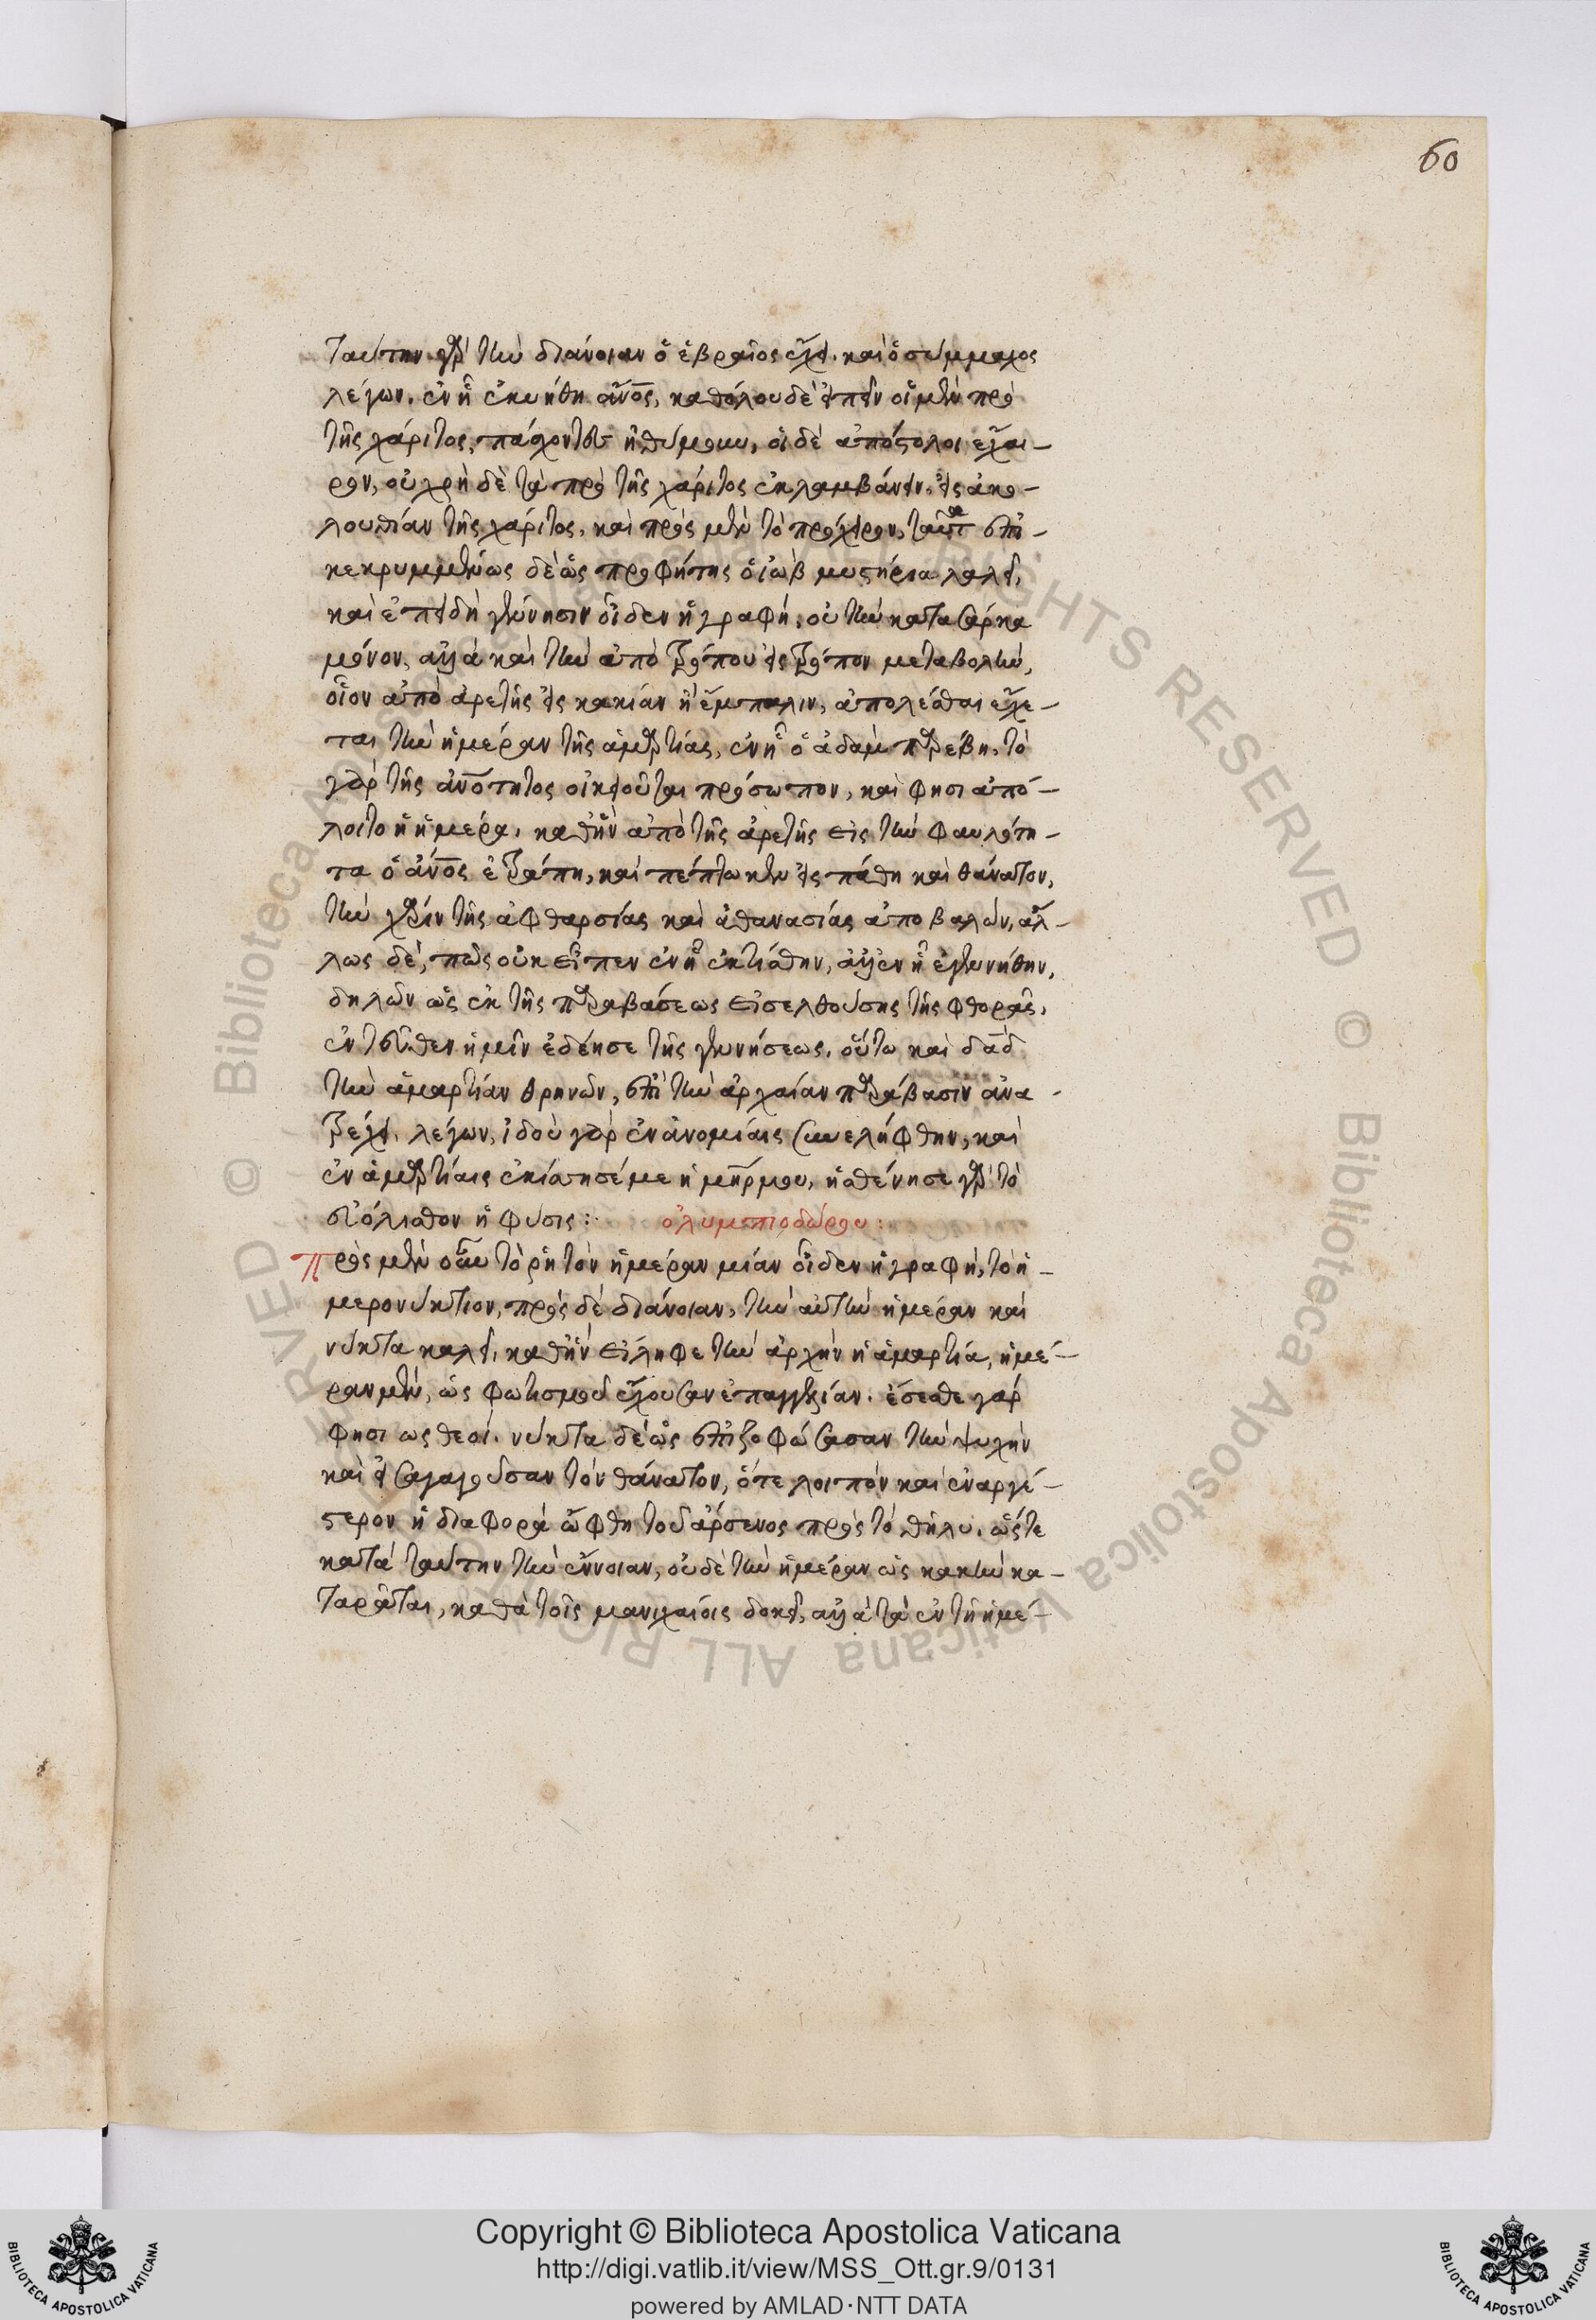 60
ταύτην γὰρ τὴν διάνοιαν ὁ ἑβραῖος ἔχει. καὶ ὁ σύμμαχος
λέγων. ἐν ᾗ ἐκυήθη ἄνος, καθόλου δὲ εἰπεῖν οἱ μὲν πρὸ
τῆς χάριτος, πάσχοντες ἠθύμουν, οἱ δὲ ἀπόστολοι ἔχαι-
ρον, οὐ χρὴ δὲ τὰ πρὸ τῆς χάριτος ἐκλαμβάνειν. εἰς ἀκο-
λουθίαν τῆς χάριτος. καὶ πρὸς μὲν τὸ πρόχειρον, ταῦτα ἐπι-
κεκρυμμένως δὲ ὡς προφήτης ὁ ἰὼβ μυστήρια λαλεῖ,
καὶ ἐπειδὴ γέννησιν οἶδεν ἡ γραφή, οὐ τὴν κατα σάρκα
μόνον, ἀλλὰ καὶ τὴν ἀπὸ τρόπου εἰς τρόπον μεταβολὴν,
οἷον ἀπὸ ἀρετῆς εἰς κακίαν ἢ ἔμπαλιν, ἀπολέσθαι εὔχε-
ται τὴν ἡμέραν τῆς ἁμαρτίας, ἐν ᾗ ὁ ἀδὰμ παρέβη. τὸ
γὰρ τῆς ἀνότητος οἰκειοῦται πρόσωπον, καὶ φησι ἀπό-
λοιτο ἡ ἡμέρα, καθ' ἣν ἀπὸ τῆς ἀρετῆς εἰς τὴν φαυλότη-
τα ὁ ἄνος ἐτράπη, καὶ πέπτωκεν εἰς πάθη καὶ θάνατον,
τὴν χάριν τῆς ἀφθαρσίας καὶ ἀθανασίας ἀποβαλών, ἄλ-
λως δέ, πῶς οὐκ εἶπεν ἐν ᾗ ἐκτίσθην, ἀλλ' ἐν ᾗ ἐγεννήθην,
δηλῶν ὡς ἐκ τῆς παραβάσεως εἰσελθούσης τῆς φθορᾶς,
ἐντεῦθεν ἡμῖν ἐδέησε τῆς γεννήσεως. οὕτω καὶ δαδ
τὴν ἁμαρτίαν θρηνῶν, ἐπὶ τὴν ἀρχαίαν παράβασιν ἀνα-
τρέχει. λέγων, ἰδοὺ γὰρ ἐν ἀνομίαις συνελήφθην, καὶ
ἐν ἁμαρτίαις ἐκίσσησέ με ἡ μηρ μου, ἠσθένησε γὰρ τὸ
εὐόλισθον ἡ φύσις: ὀλυμπιοδώρου:
Πρὸς μὲν οὖν τὸ ῥητὸν ἡμέραν μίαν οἶδεν ἡ γραφή, τὸ ἡ-
μερονύκτιον, πρὸς δὲ διάνοιαν, τὴν αὐτὴν ἡμέραν καὶ
νύκτα καλεῖ, καθ' ἣν εἴληφε τὴν ἀρχὴν ἡ ἁμαρτία, ἡμέ-
ραν μὲν, ὡς φωτισμοῦ ἔχουσαν ἐπαγγελίαν. ἔσεσθε γάρ
φησι ως θεοί. νύκτα δὲ ὡς ἐπιζοφώσασαν τὴν ψυχὴν
καὶ εἰσαγαγοῦσαν τὸν θάνατον, ὅτε λοιπὸν καὶ ἐναργέ-
στερον ἡ διαφορὰ ὤφθη τοῦ ἄρσενος πρὸς τὸ θῆλυ. ὥστε
κατὰ ταύτην τὴν ἔννοιαν, οὐδὲ τὴν ἡμέραν ὡς κακὴν κα-
ταρᾶται, καθὰ τοῖς μανιχαίοις δοκεῖ, ἀλλὰ τὰ ἐν τῇ ἡμέ-
Copyright © Biblioteca Apostolica Vaticana
http://digi.vatlib.it/view/MSS_Ott.gr.9/0131
powered by AMLAD·NTT DATA
BIBLIOTECA APOSTOLICA VATICANA
BIBLIOTECA APOSTOLICA VATICANA